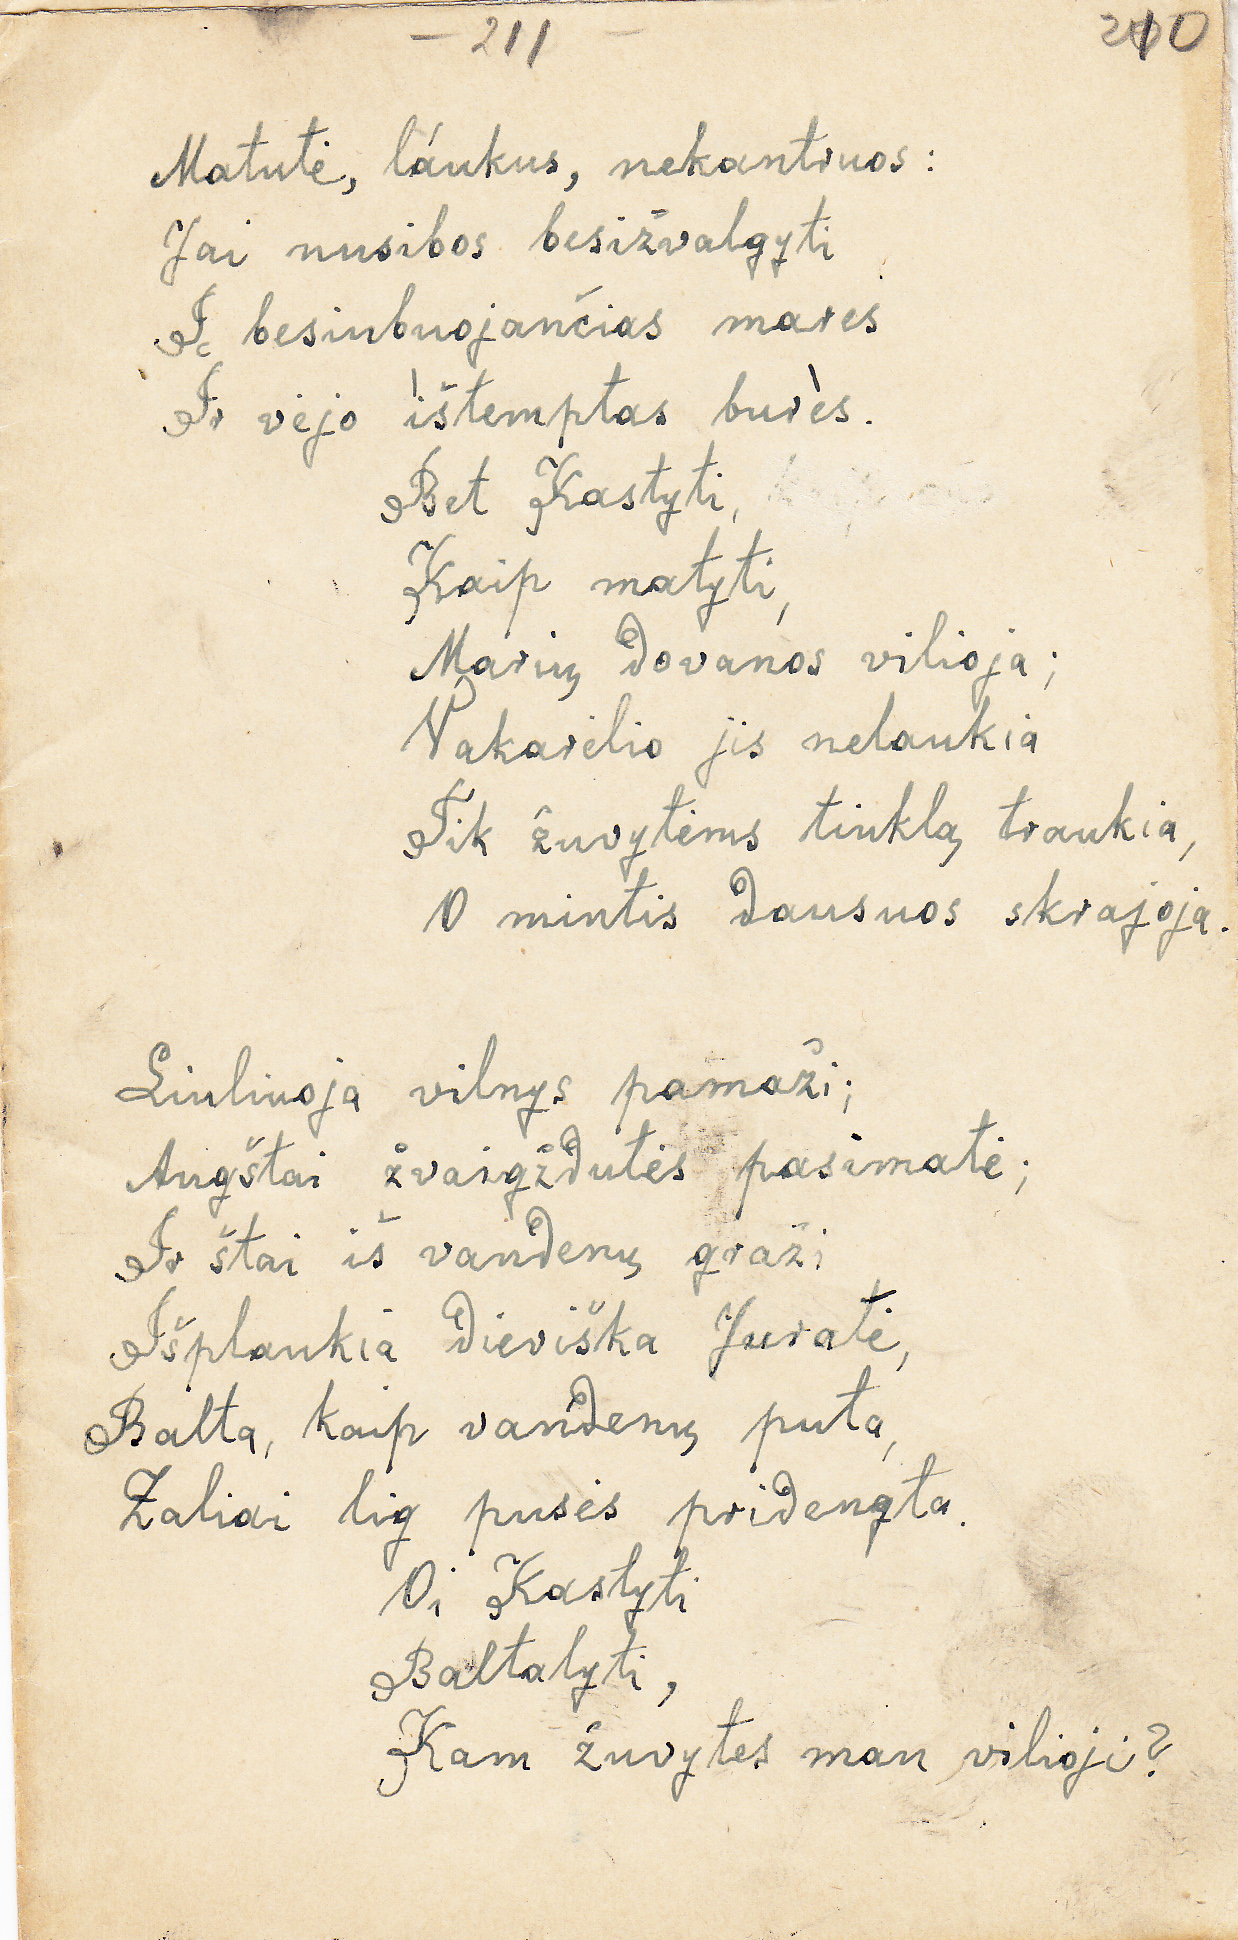 - 211 -
210
Matutė, láukus, nekantruos:
Jai nusibos besižvalgyti
Į besiubuojančias mares
Ir vėjo ištemptas burès.
Bet Kastyti,
Kaip matyti,
Marių dovanos vilioja;
Vakarėlio jis nelaukia
Tik žuvytėms tinklą traukia,
O mintis dausuos skrajoja.
Liuliuoja vilnys pamaži;
Augštai žvaigždutės pasimatė;
Ir štai iš vandenų graži
Išplaukia dieviška Juratė,
Balta, kaip vandenų puta,
Žaliai lig pusės pridengta.
Oi Kastyti
Baltalyti,
Kam žuvytes man vilioji?